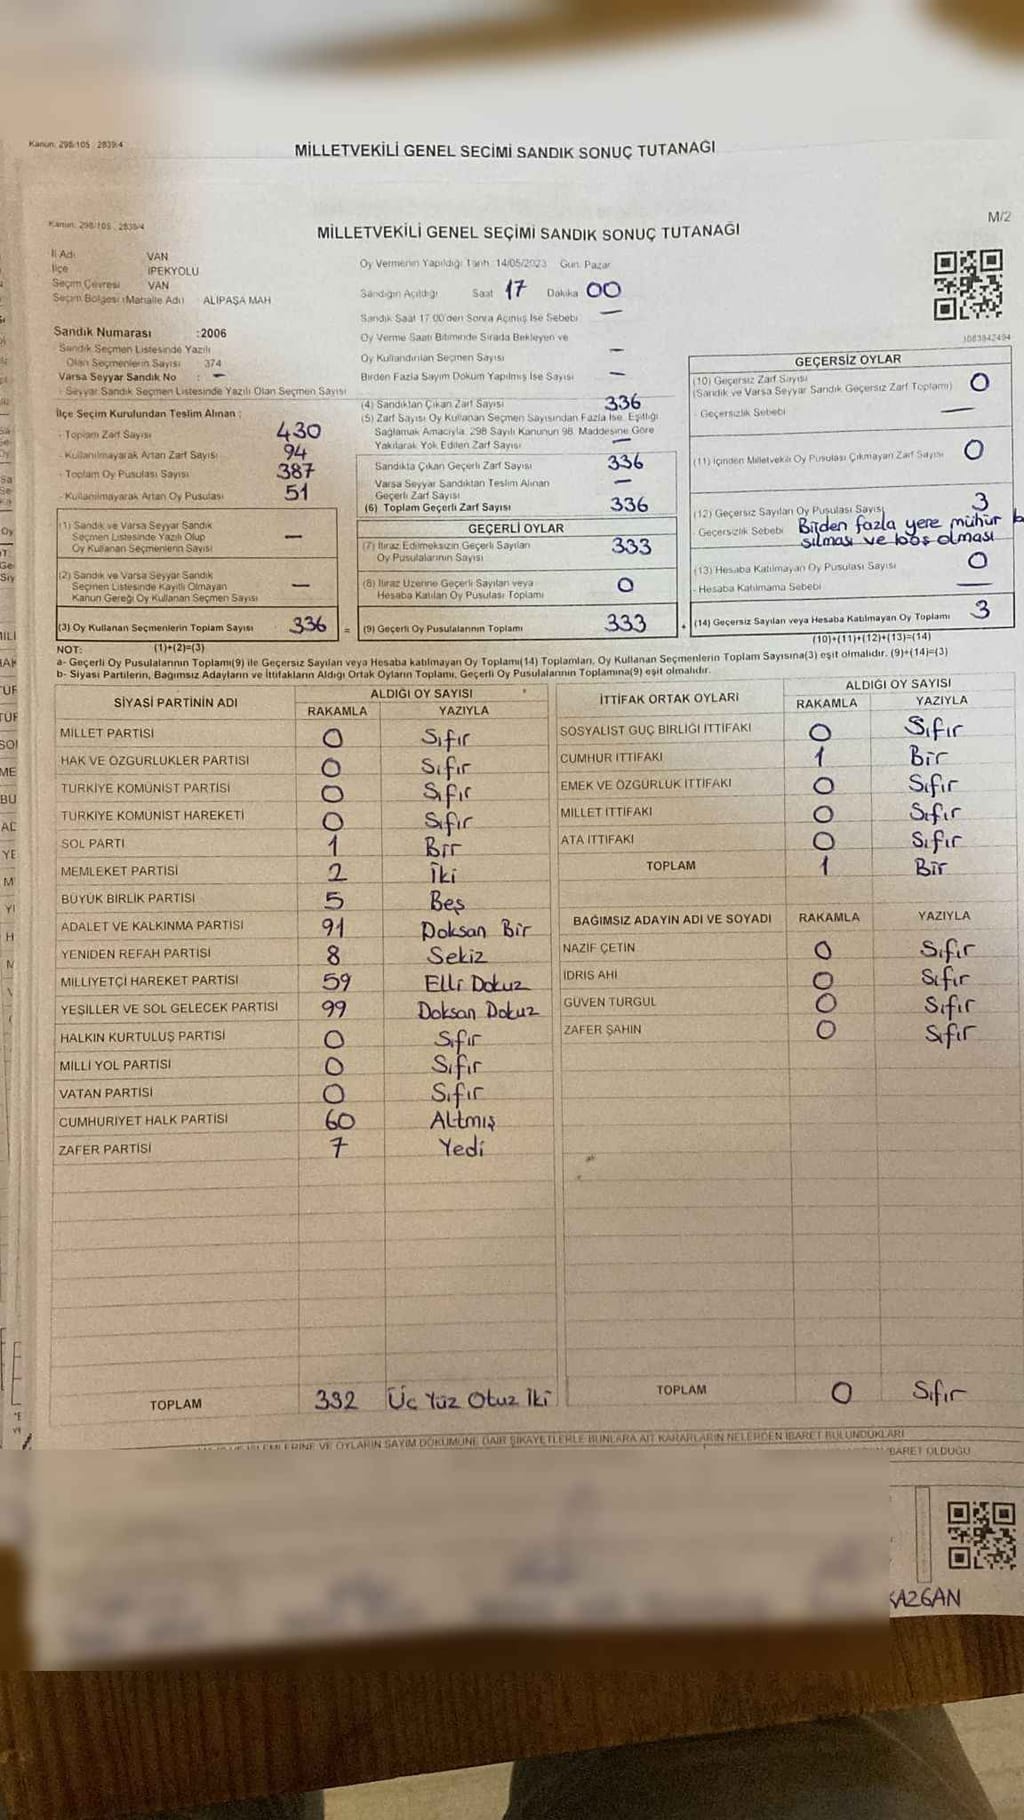 Kanun: 298/105 2839/4
MİLLETVEKİLİ GENEL SECİMİ SANDIK SONUÇ TUTANAĞI
M/2
Kanun: 298/105 2839/4
MİLLETVEKİLİ GENEL SEÇİMİ SANDIK SONUÇ TUTANAĞI
İl Adı VAN
İlçe İPEKYOLU
Seçim Çevresi VAN
Seçim Bölgesi (Mahalle Adı) ALİPAŞA MAH
Sandık Numarası :2006
Sandık Seçmen Listesinde Yazılı
Olan Seçmenlerin Sayısı 374
Varsa Seyyar Sandık No : -
Seyyar Sandık Seçmen Listesinde Yazılı Olan Seçmen Sayısı
İlçe Seçim Kurulundan Teslim Alınan :
- Toplam Zarf Sayısı 430
- Kullanılmayarak Artan Zarf Sayısı 94
- Toplam Oy Pusulası Sayısı 387
- Kullanılmayarak Artan Oy Pusulası 51
(1) Sandık ve Varsa Seyyar Sandık
Seçmen Listesinde Yazılı Olup
Oy Kullanan Seçmenlerin Sayısı —
(2) Sandık ve Varsa Seyyar Sandık
Seçmen Listesinde Kayıtlı Olmayan
Kanun Gereği Oy Kullanan Seçmen Sayısı —
(3) Oy Kullanan Seçmenlerin Toplam Sayısı 336 =
Oy Vermenin Yapıldığı Tarih :14/05/2023 Gün: Pazar
Sandığın Açıldığı Saat 17 Dakika 00
Sandık Saat 17.00'den Sonra Açılmış İse Sebebi —
Oy Verme Saati Bitiminde Sırada Bekleyen ve
Oy Kullandırılan Seçmen Sayısı —
Birden Fazla Sayım Döküm Yapılmış İse Sayısı —
(4) Sandıktan Çıkan Zarf Sayısı 336
(5) Zarf Sayısı Oy Kullanan Seçmen Sayısından Fazla İse, Eşitliği
Sağlamak Amacıyla, 298 Sayılı Kanunun 98. Maddesine Göre
Yakılarak Yok Edilen Zarf Sayısı —
Sandıkta Çıkan Geçerli Zarf Sayısı 336
Varsa Seyyar Sandıktan Teslim Alınan
Geçerli Zarf Sayısı —
(6) Toplam Geçerli Zarf Sayısı 336
GEÇERLİ OYLAR
(7) İtiraz Edilmeksizin Geçerli Sayılan
Oy Pusulalarının Sayısı 333
(8) İtiraz Üzerine Geçerli Sayılan veya
Hesaba Katılan Oy Pusulası Toplamı 0
(9) Geçerli Oy Pusulalarının Toplamı 333 +
1083942494
GEÇERSİZ OYLAR
(10) Geçersiz Zarf Sayısı
(Sandık ve Varsa Seyyar Sandık Geçersiz Zarf Toplamı) 0
- Geçersizlik Sebebi —
(11) İçinden Milletvekili Oy Pusulası Çıkmayan Zarf Sayısı 0
(12) Geçersiz Sayılan Oy Pusulası Sayısı 3
Geçersizlik Sebebi Birden fazla yere mühür b
sılması ve boş olması
(13) Hesaba Katılmayan Oy Pusulası Sayısı 0
- Hesaba Katılmama Sebebi —
(14) Geçersiz Sayılan veya Hesaba Katılmayan Oy Toplamı 3
NOT: (1)+(2)=(3) (10)+(11)+(12)+(13)=(14)
a- Geçerli Oy Pusulalarının Toplamı(9) ile Geçersiz Sayılan veya Hesaba katılmayan Oy Toplamı(14) Toplamları, Oy Kullanan Seçmenlerin Toplam Sayısına(3) eşit olmalıdır. (9)+(14)=(3)
b- Siyasi Partilerin, Bağımsız Adayların ve İttifakların Aldığı Ortak Oyların Toplamı, Geçerli Oy Pusulalarının Toplamına(9) eşit olmalıdır.
SİYASİ PARTİNİN ADI ALDIĞI OY SAYISI
RAKAMLA YAZIYLA
MİLLET PARTİSİ 0 Sıfır
HAK VE ÖZGÜRLÜKLER PARTİSİ 0 Sıfır
TÜRKİYE KOMÜNİST PARTİSİ 0 Sıfır
TÜRKİYE KOMÜNİST HAREKETİ 0 Sıfır
SOL PARTİ 1 Bir
MEMLEKET PARTİSİ 2 İki
BÜYÜK BİRLİK PARTİSİ 5 Beş
ADALET VE KALKINMA PARTİSİ 91 Doksan Bir
YENİDEN REFAH PARTİSİ 8 Sekiz
MİLLİYETÇİ HAREKET PARTİSİ 59 Elli Dokuz
YEŞİLLER VE SOL GELECEK PARTİSİ 99 Doksan Dokuz
HALKIN KURTULUŞ PARTİSİ 0 Sıfır
MİLLİ YOL PARTİSİ 0 Sıfır
VATAN PARTİSİ 0 Sıfır
CUMHURİYET HALK PARTİSİ 60 Altmış
ZAFER PARTİSİ 7 Yedi
TOPLAM 332 Üç Yüz Otuz İki
İTTİFAK ORTAK OYLARI ALDIĞI OY SAYISI
RAKAMLA YAZIYLA
SOSYALİST GÜÇ BİRLİĞİ İTTİFAKI 0 Sıfır
CUMHUR İTTİFAKI 1 Bir
EMEK VE ÖZGÜRLÜK İTTİFAKI 0 Sıfır
MİLLET İTTİFAKI 0 Sıfır
ATA İTTİFAKI 0 Sıfır
TOPLAM 1 Bir
BAĞIMSIZ ADAYIN ADI VE SOYADI RAKAMLA YAZIYLA
NAZİF ÇETİN 0 Sıfır
İDRİS AHİ 0 Sıfır
GÜVEN TURGUL 0 Sıfır
ZAFER ŞAHİN 0 Sıfır
TOPLAM 0 Sıfır
VE OYLARIN SAYIM DÖKÜMÜNE DAİR ŞİKAYETLERLE BUNLARA AİT KARARLARIN NELERDEN İBARET BULUNDUKLARI
İBARET OLDUĞU